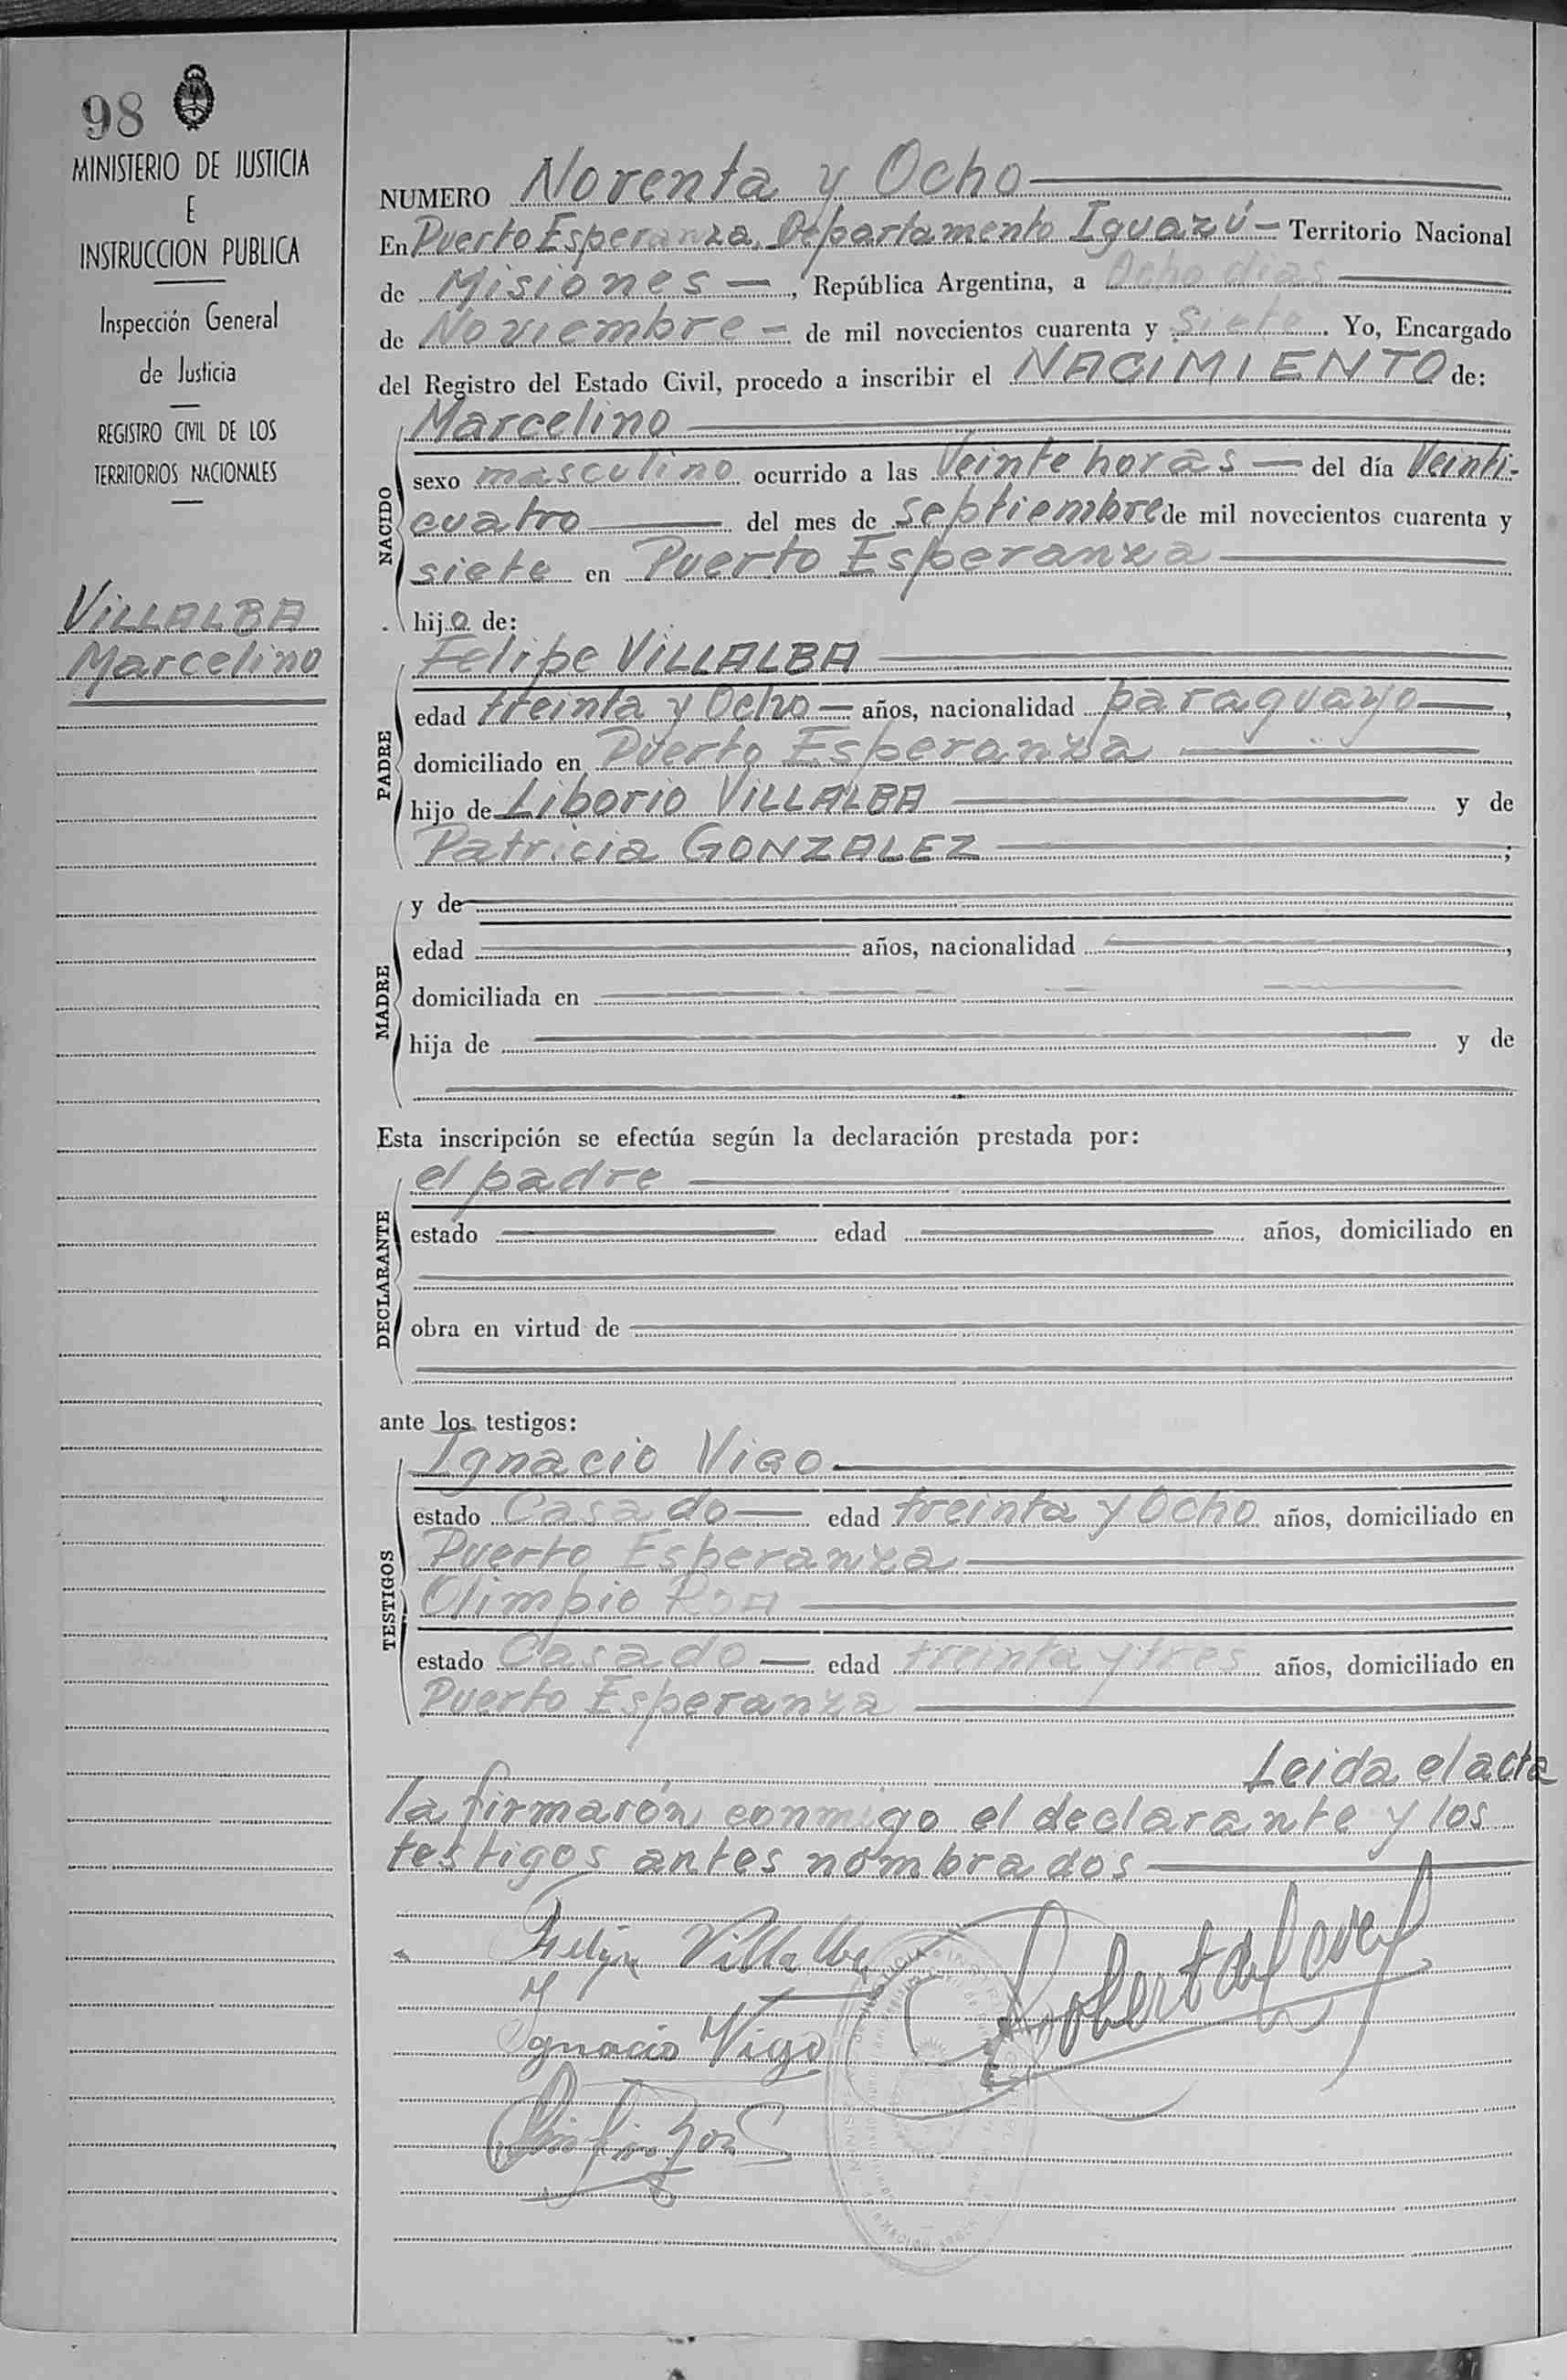 98
MINISTERIO DE JUSTICIA
E
INSTRUCCION PUBLICA
Inspección General
de Justicia
REGISTRO CIVIL DE LOS
TERRITORIOS NACIONALES
VILLALBA
Marcelino
NUMERO Noventa y Ocho
En Puerto Esperanza, Departamento Iguazú - Territorio Nacional
de Misiones -, República Argentina, a Ocho dias
de Noviembre - de mil novecientos cuarenta y siete. Yo, Encargado
del Registro del Estado Civil, procedo a inscribir el NACIMIENTO de:
NACIDO
Marcelino
sexo masculino ocurrido a las Veinte horas - del día Veinti-
cuatro del mes de septiembre de mil novecientos cuarenta y
siete en Puerto Esperanza
hijo de:
PADRE
Felipe VILLALBA
edad treinta y Ocho - años, nacionalidad paraguayo,
domiciliado en Puerto Esperanza
hijo de Liborio VILLALBA y de
Patricia GONZALEZ;
MADRE
y de
edad años, nacionalidad ,
domiciliada en
hija de y de
Esta inscripción se efectúa según la declaración prestada por:
DECLARANTE
el padre
estado edad años, domiciliado en
obra en virtud de
ante los testigos:
TESTIGOS
Ignacio VIGO
estado Casado - edad treinta y Ocho años, domiciliado en
Puerto Esperanza
Olimpio ROA
estado Casado - edad treinta y tres años, domiciliado en
Puerto Esperanza
Leida el acta
la firmarón conmigo el declarante y los
testigos antes nombrados
Felipe Villalba
Ignacio Vigo